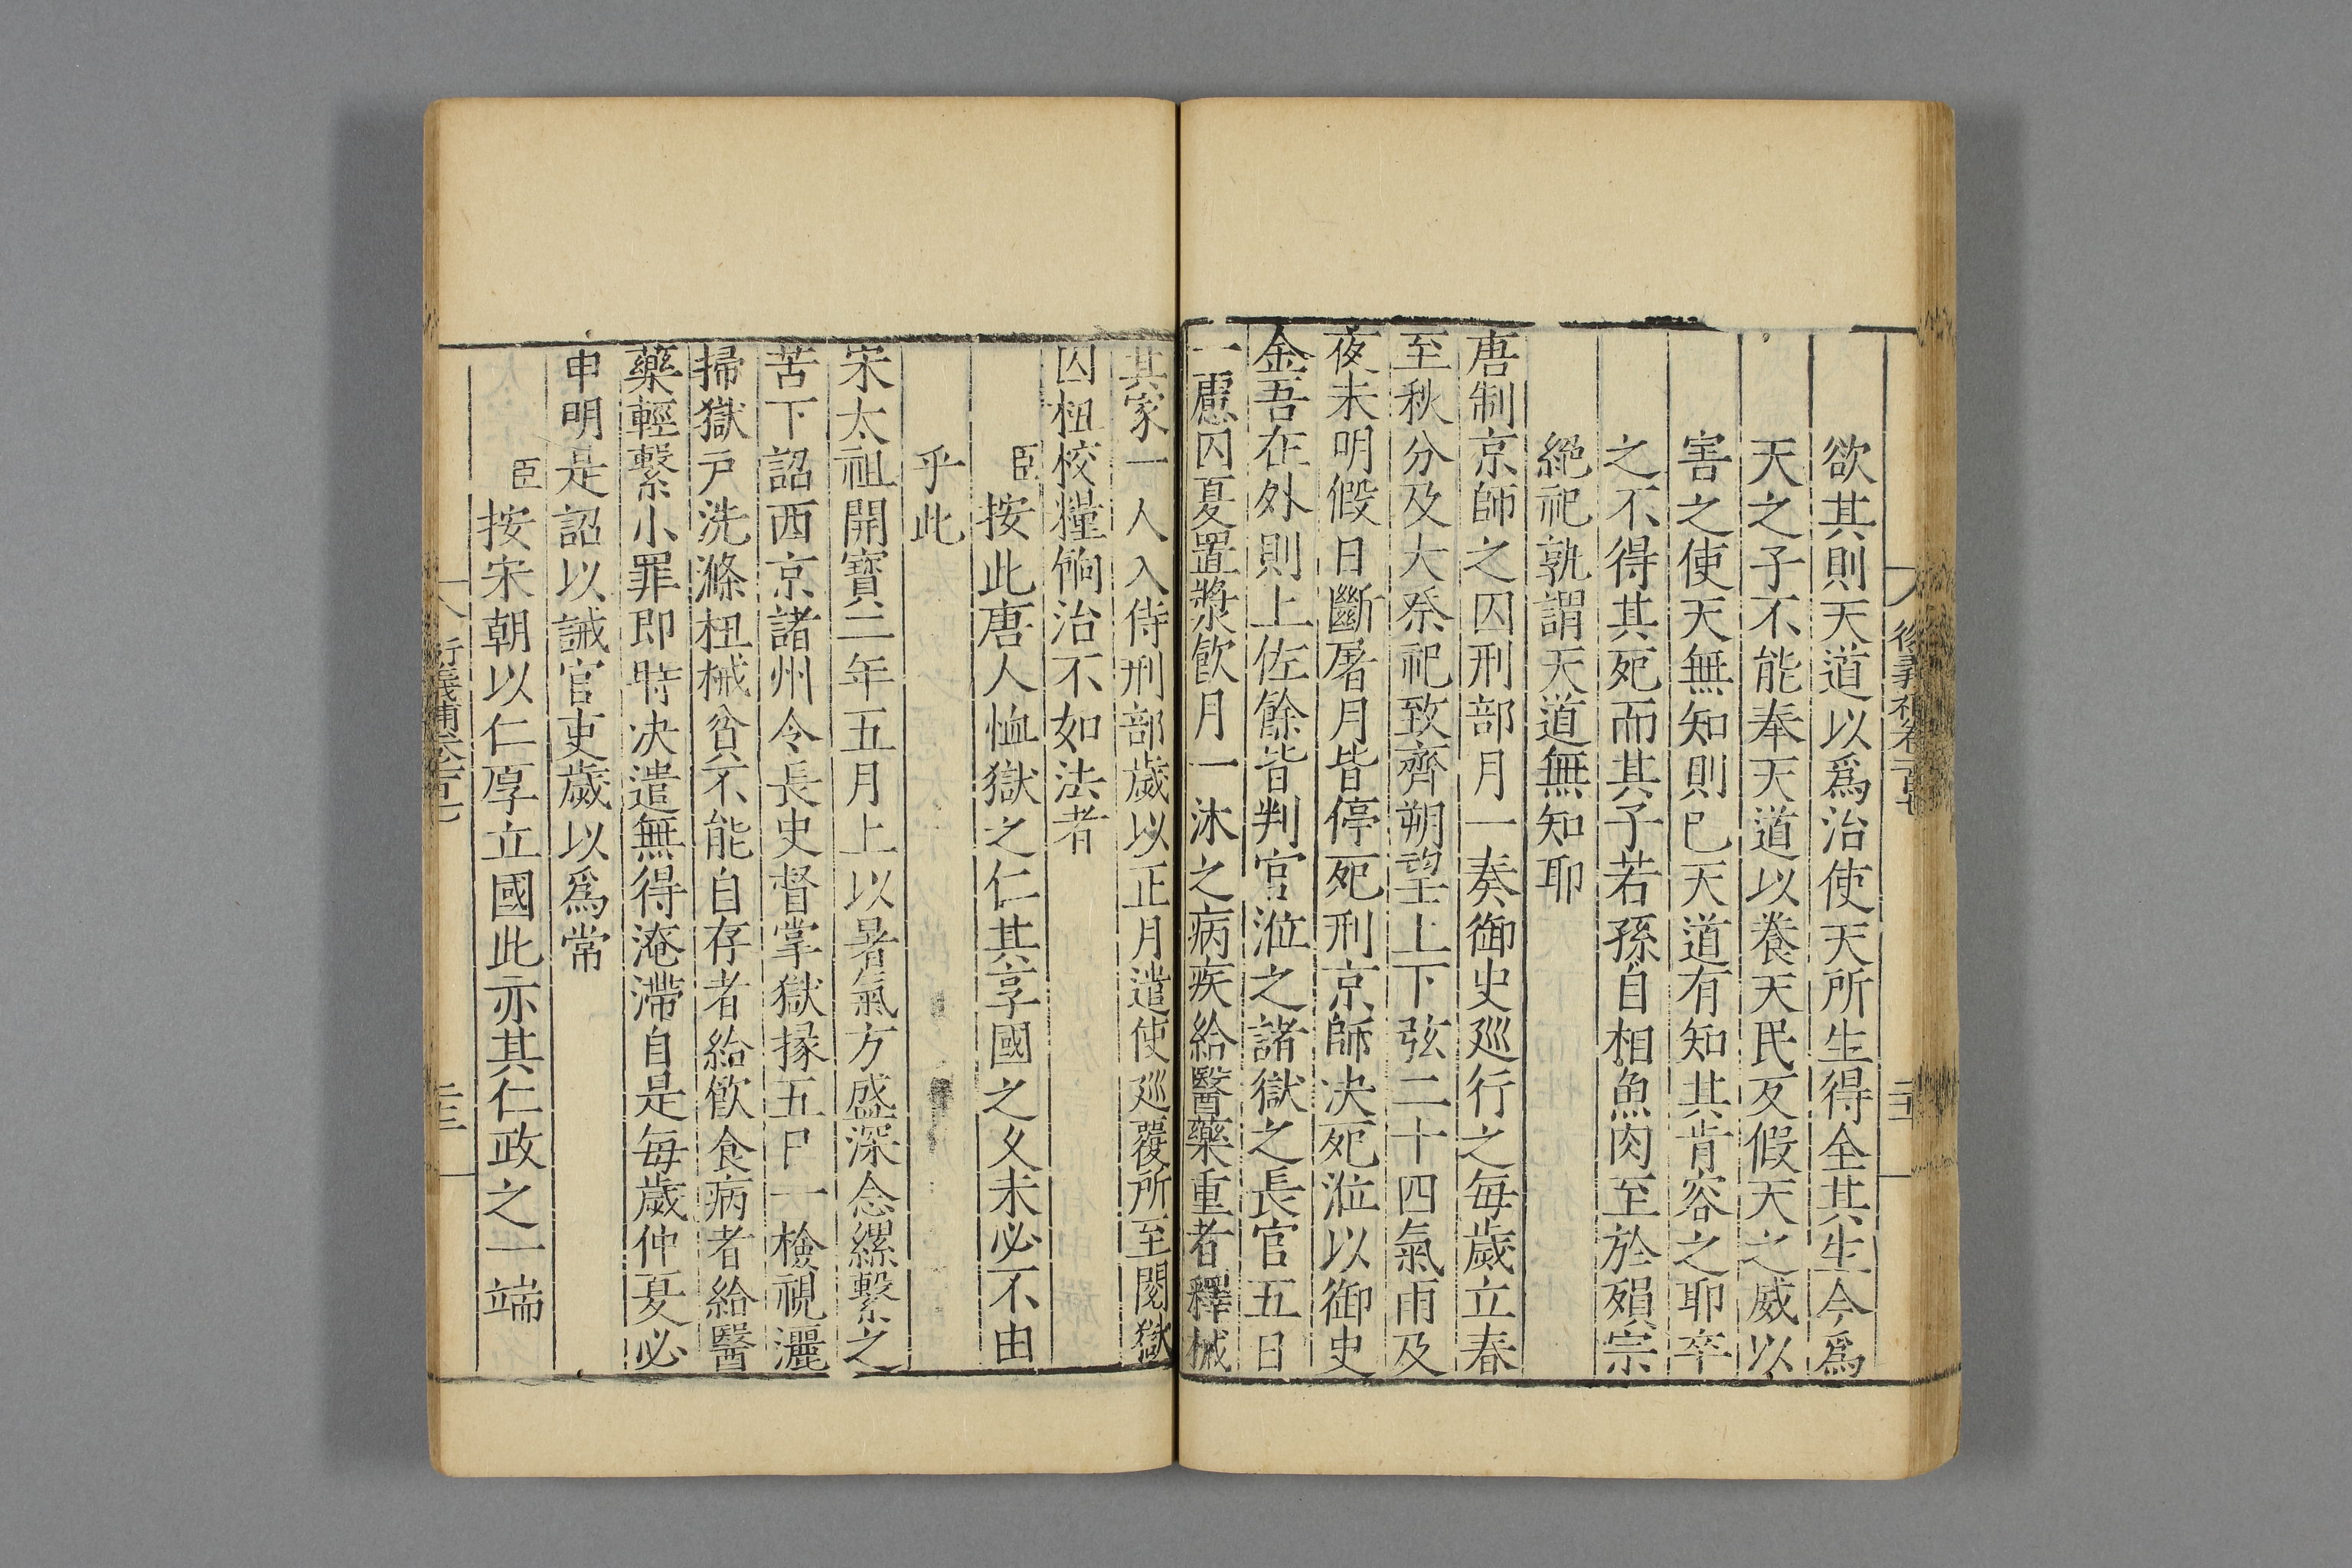 欲其則天道以爲治使天所生得全其生今爲
天之子不能奉天道以養天民反假天之威以
害之使天無知則已天道有知其肯容之耶卒
之不得其死而其子若孫自相魚肉至於殞宗
絶祀孰謂天道無知耶
唐制京師之囚刑部月一奏御史廵行之每歲立春
至秋分及大祭祀致齊朔望上下弦二十四氣雨及
夜未明假日斷屠月皆停死刑京師决死涖以御史
金吾在外則上佐餘皆判官涖之諸獄之長官五日
一慮囚夏置漿飲月一沐之病疾給醫藥重者釋械
其家一人入侍刑部歲以正月遣使廵覆所至閱獄
囚杻校糧餉治不如法者
臣按此唐人恤獄之仁其享國之久未必不由
乎此
宋太祖開寶二年五月上以暑氣方盛深念縲繫之
苦下詔西京諸州令長史督掌獄掾五日一檢視灑
掃獄戸洗滌杻械貧不能自存者給飲食病者給醫
藥輕繫小罪即時决遣無得淹滯自是每歲仲夏必
申明是詔以誡官吏歲以爲常
臣按宋朝以仁厚立國此亦其仁政之一端